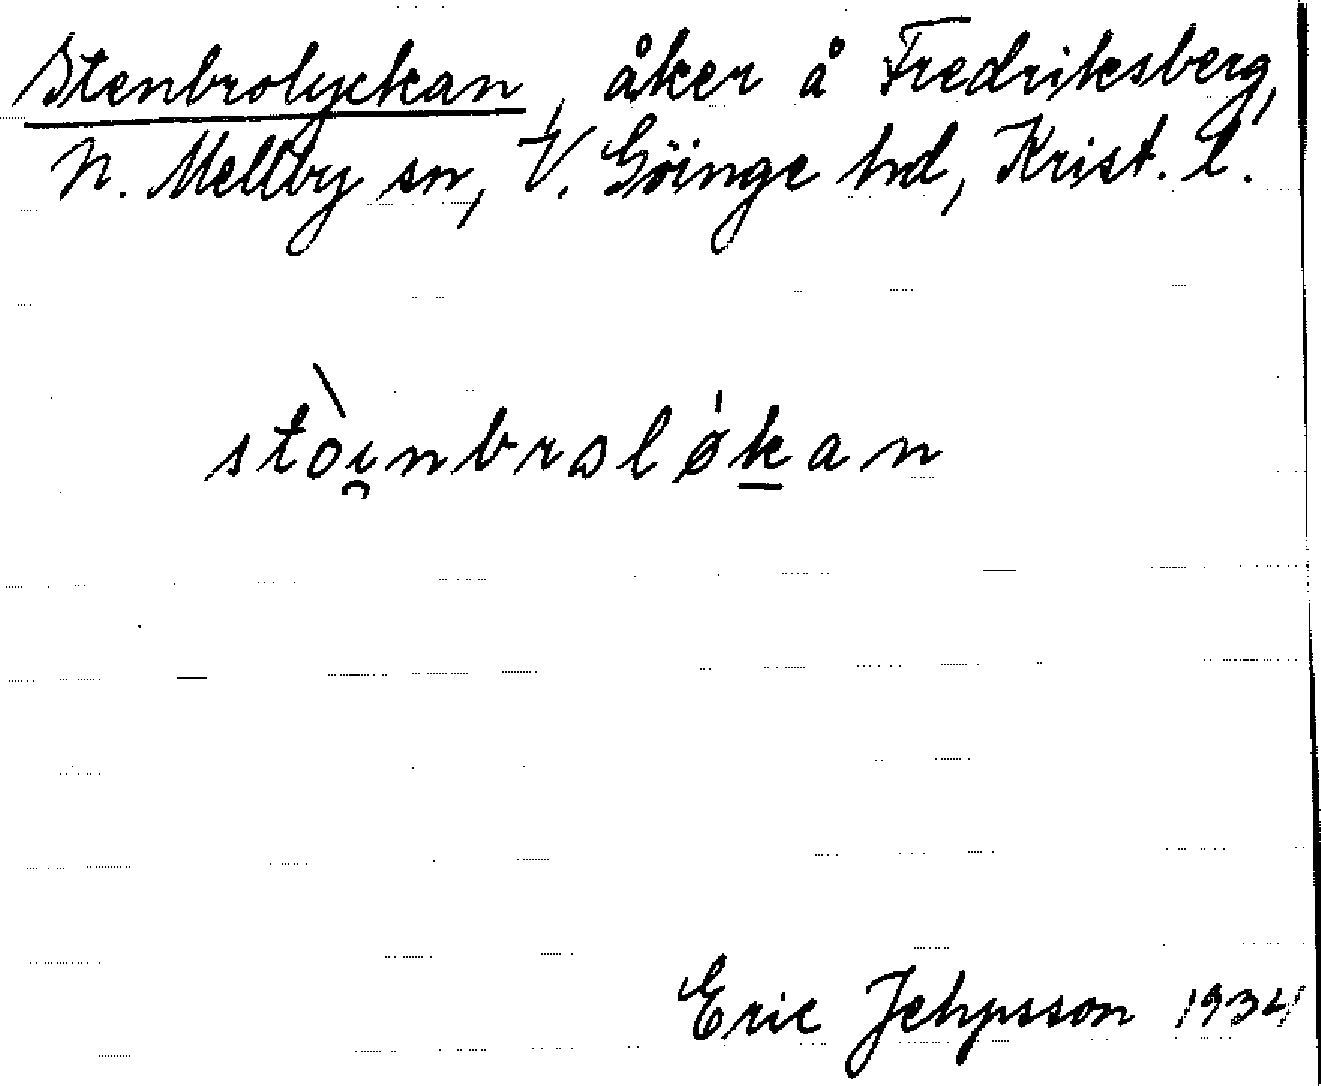 Stenbrolyckan, åker å Fredriksberg,
N. Mellby sn, V. Göinge hd, Krist. l.
stòi̯nbrɷlø̍k̲an
Eric Jehpsson 1934